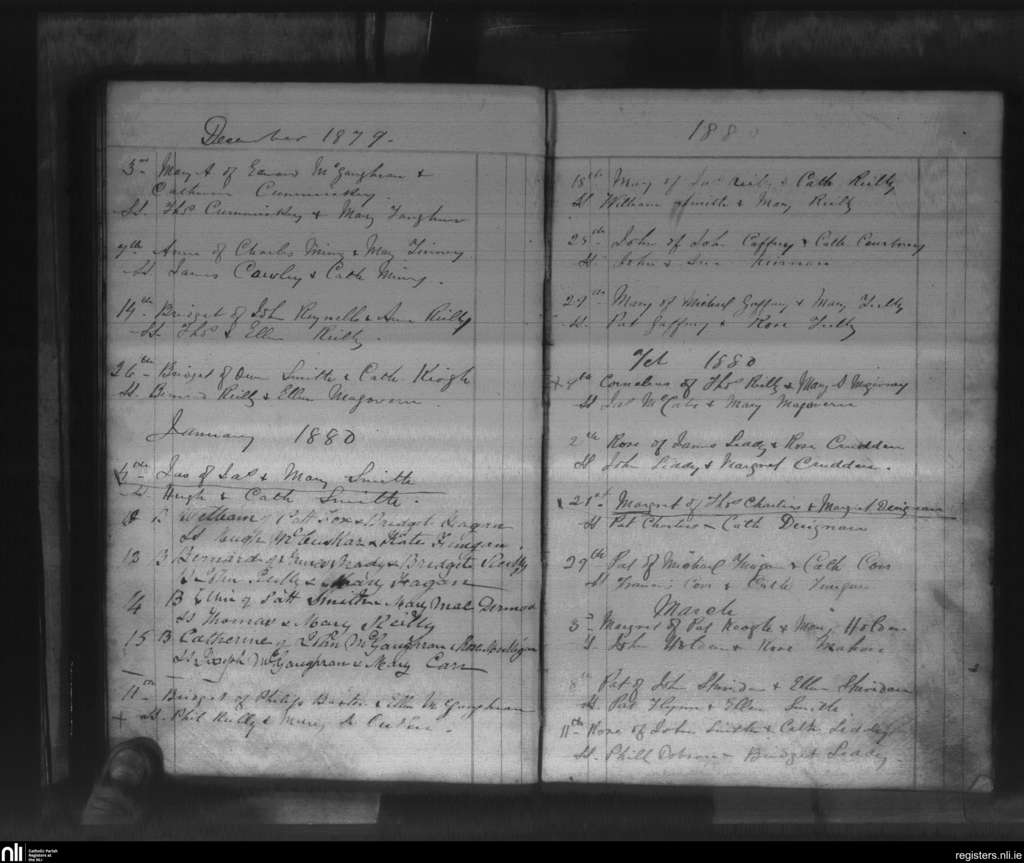 December 1879.
3rd Mary A of Edward McGaughran &
Catherine Cummiskey
St. Thos Cummiskey & Mary
9th Anne of Charles & May
St. James Cawley & Cath
14th Bridget of John Reynolds & Ann Reilly
St. Thos & Ellen Reilly.
26th Bridget of Owen Smith & Cath Keogh
St. Bernard Reilly & Ellen Magovern.
January 1880
Jas of Jas & Mary Smith
St. Hugh & Cath Smith.
B William of Patt Fox & Bridget Fagan
St Hugh & Kate Finegan.
13 B Bernard of Leady & Bridget Reilly
St John Reilly & Mary Fagan
14 B of Patt Smith & Mary MacDermod
Ss Thomas & Mary Reilly
15 B Catherine of McGaughran & Rose
Ss Joseph McGaughran & Mary Carr
11th Bridget of Philip & Ellen McGaughran
St. Phil Reilly & Mary A
1880
18th Mary of Jas Reilly & Cath Reilly
St William Smith & Mary Reilly
25th John of John Caffrey & Cath Courtney
St. John & Kiernan
27th Mary of Michael Gaffney & Mary Tully
St. Pat Gaffney & Rose Tully
Feb 1880
+ Cornelius of Thos Reilly & Mary A
St Jas McCabe & Mary Magovern
2th Rose of James Leddy & Rose Crudden
St John Leddy & Margret Crudden.
21st Margret of Thos Charters & Margret Deignan
St Pat Charters & Cath Deignan
29th Pat of Michael Finegan & Cath Carr
St Francis Carr & Cath Finegan
March
3rd Margret of Pat Keogh & Mary Holden
St. John Holden & Rose Mahon
8th Pat of John Sheridan & Ellen Sheridan
St. Pat Flynn & Ellen Smith
11th Rose of John Smith & Cath Leddy
St. Phill Dobson & Bridget Leddy.
nli
Catholic Parish
Registers at
the NLI
registers.nli.ie